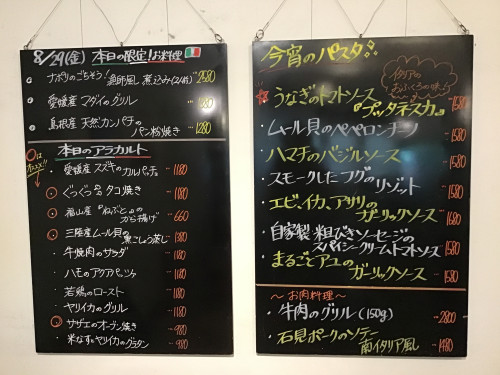 8/29(金) 本日の限定!お料理
ナポリのごちそう!漁師風 煮込み(2人前) 2580
愛媛産 マダイのグリル 1280
島根産 天然カンパチの
パン粉焼き 1280
本日のアラカルト
愛媛産 スズキのカルパッチョ 1180
ぐつぐつ タコ焼き 1180
福山産『ねぶと』の
から揚げ 660
三陸産ムール貝の
黒こしょう蒸し 1380
牛焼肉のサラダ 1180
ハモのアクアパッツァ 1180
若鶏のロースト 1180
ヤリイカのグリル 1180
サザエのオーブン焼き 980
米なすとヤリイカのグラタン 980
今宵のパスタ
イタリアの
おふくろの味
うなぎのトマトソース
『プッタネスカ』 1580
ムール貝のペペロンチーノ 1580
ハマチのバジルソース 1580
スモークしたフグの
リゾット 1580
エビ、イカ、アサリの
ガーリックソース 1680
自家製・粗びきソーセージの
スパイシークリームトマトソース 1580
まるごとアユの
ガーリックソース 1580
〜お肉料理〜
牛肉のグリル(150g) 2800
石見ポークのソテー
南イタリア風 1480